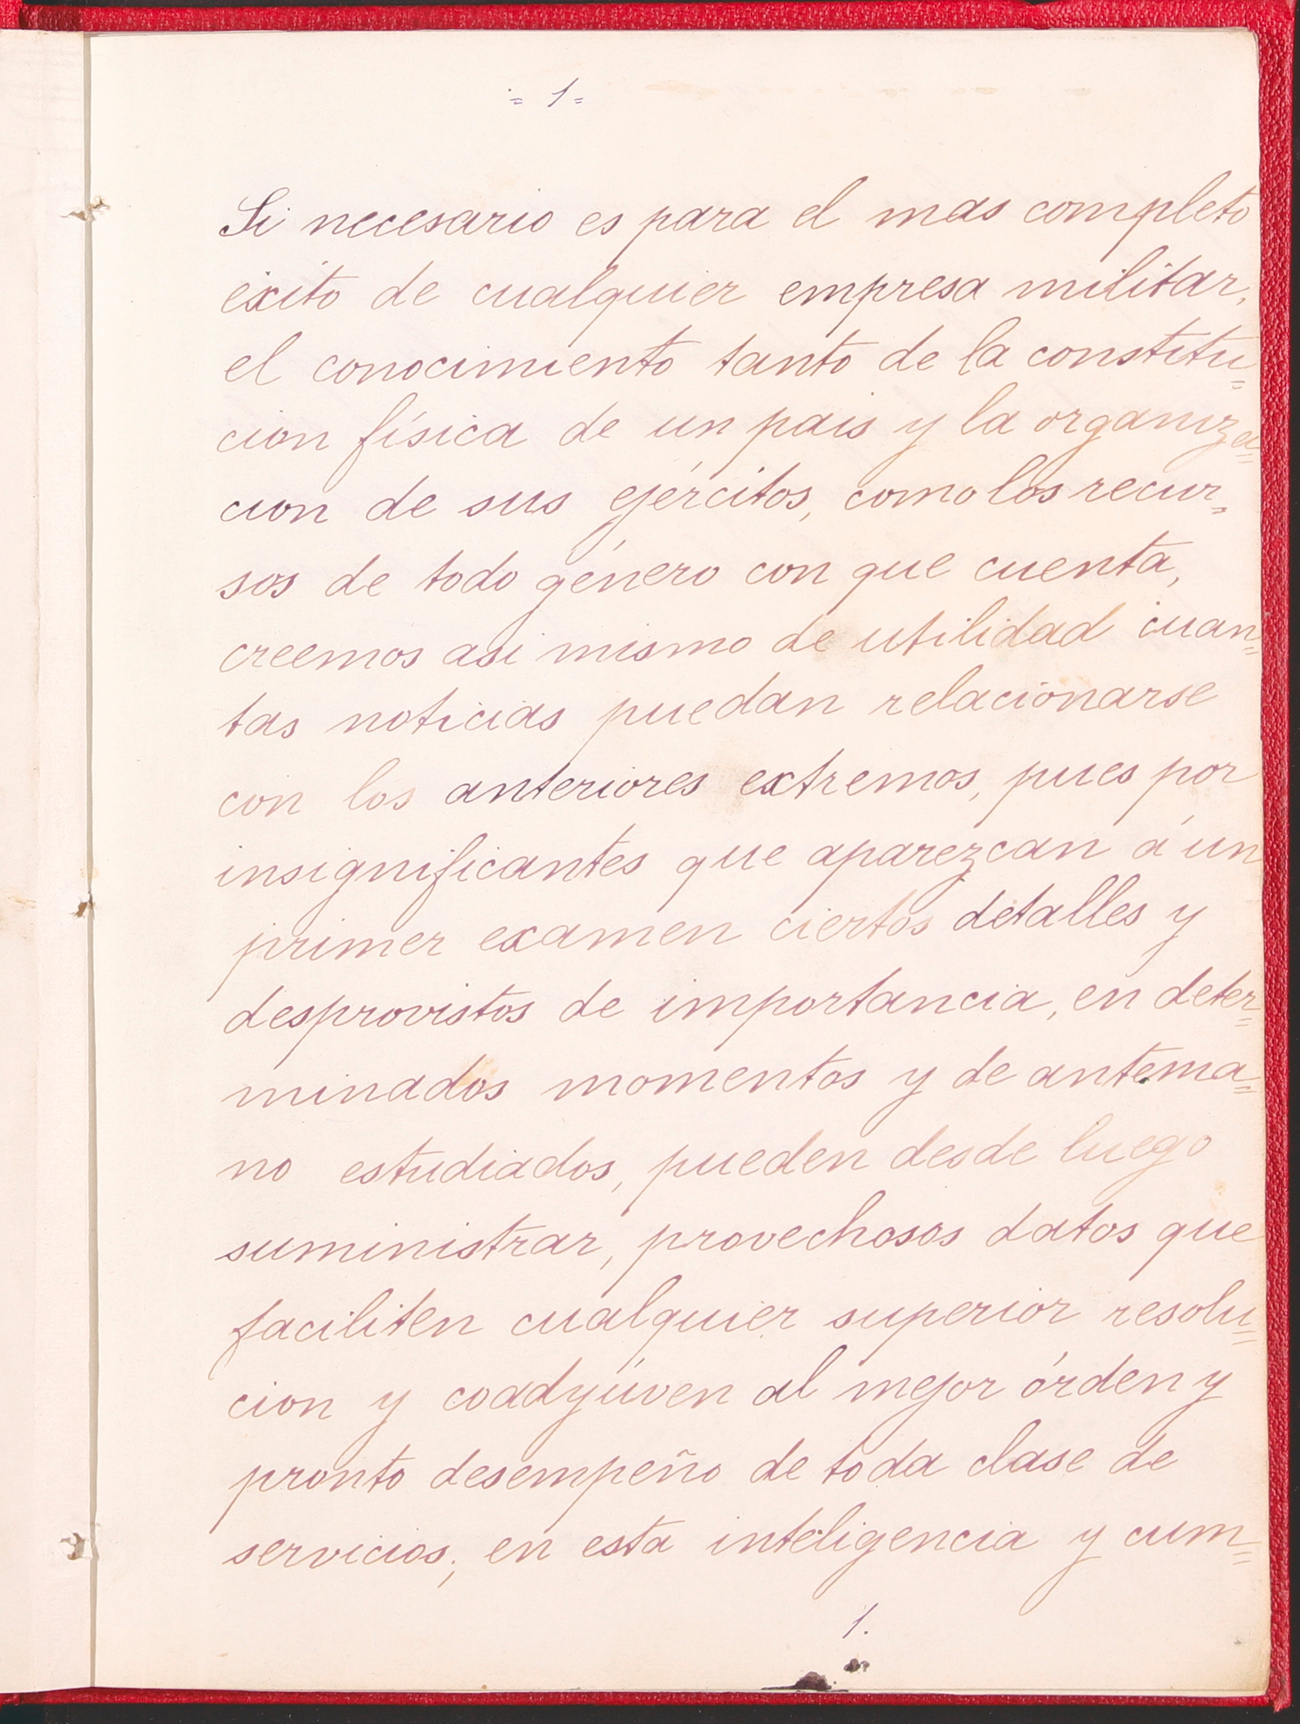 = 1 =
Si necesario es para el mas completo
éxito de cualquier empresa militar,
el conocimiento tanto de la constitu=
cion física de un pais y la organiza=
cion de sus ejércitos, como los recur=
sos de todo género con que cuenta,
creemos asi mismo de utilidad cuan=
tas noticias puedan relacionarse
con los anteriores extremos, pues por
insignificantes que aparezcan á un
primer examen ciertos detalles y
desprovistos de importancia, en deter=
minados momentos y de antema=
no estudiados, pueden desde luego
suministrar, provechosos datos que
faciliten cualquier superior resolu=
cion y coadyúven al mejor órden y
pronto desempeño de toda clase de
servicios; en esta inteligencia y cum=
1.